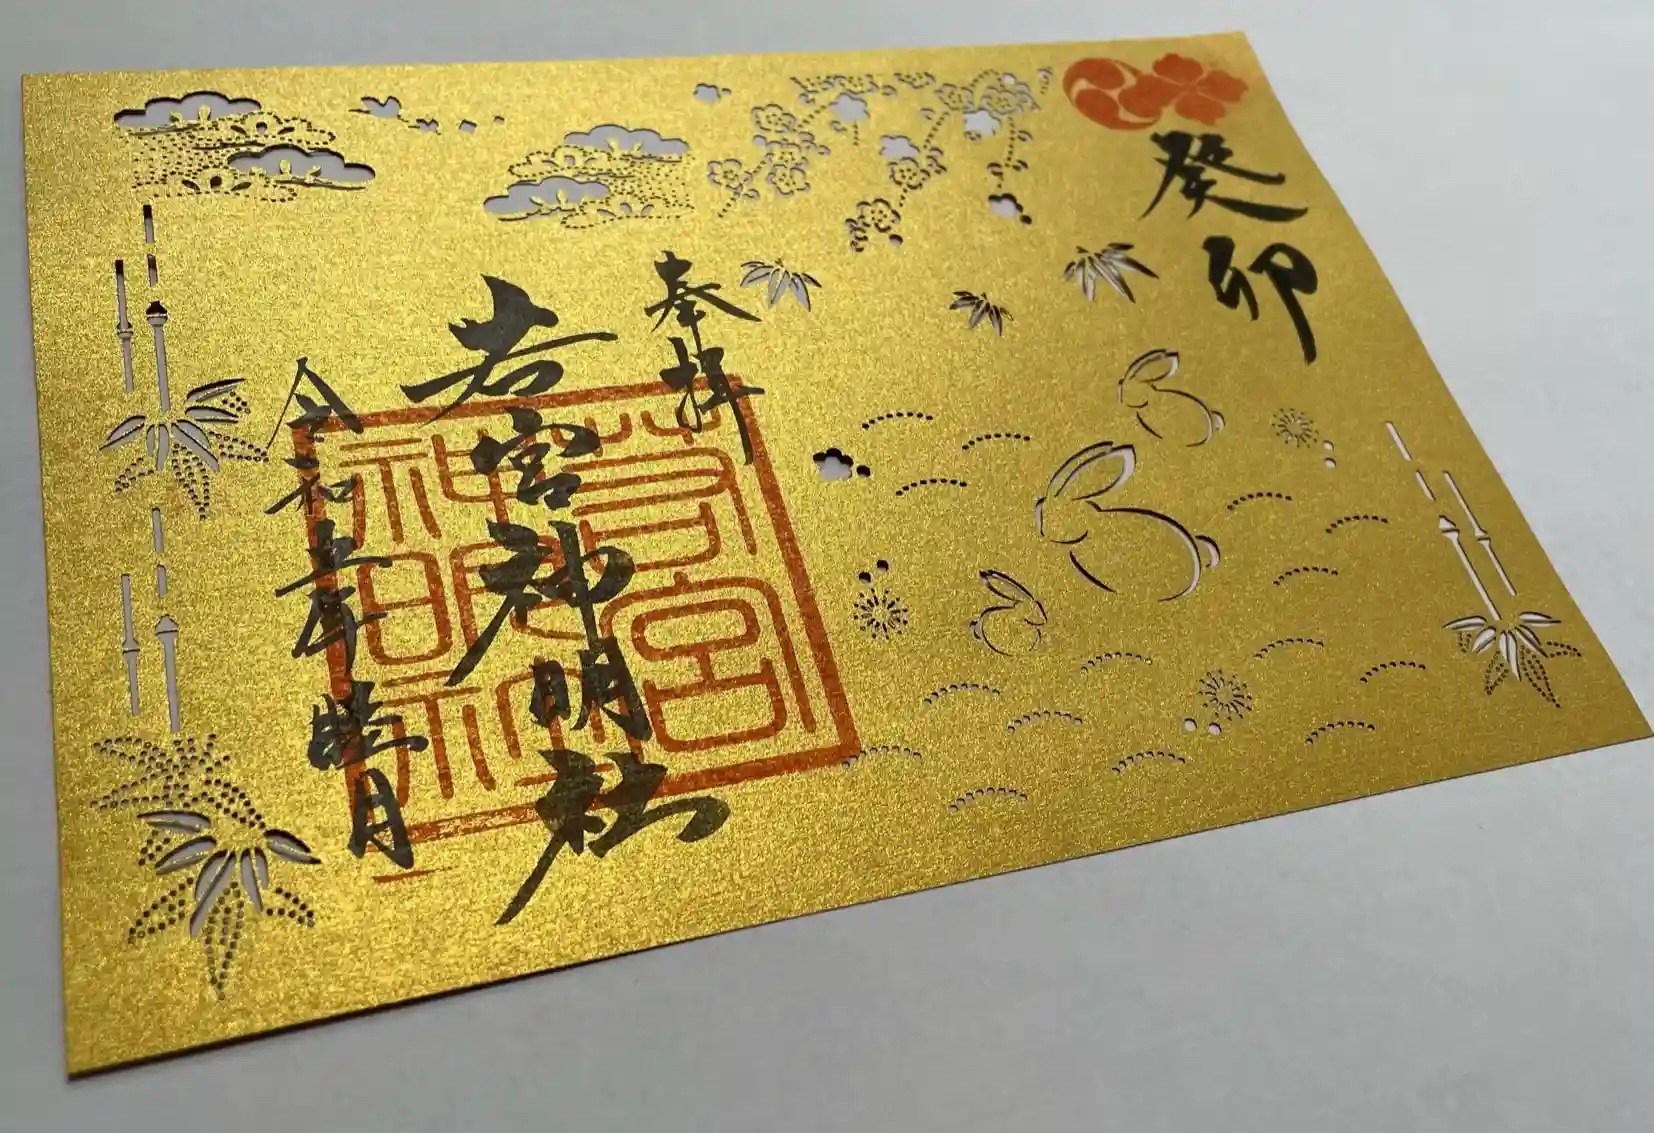 癸卯
奉拝
若宮神明社
令和五年 睦月
若宮
神明
社印